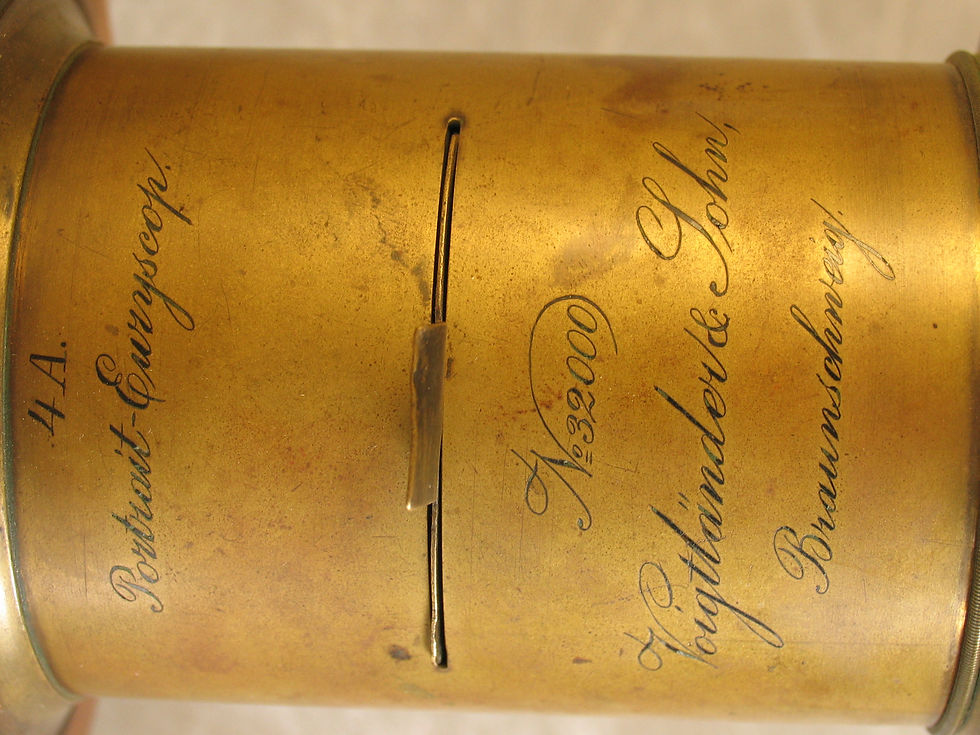 4A.
Portrait-Euryscop.
No 32000
Voigtländer & Sohn,
Braunschweig.